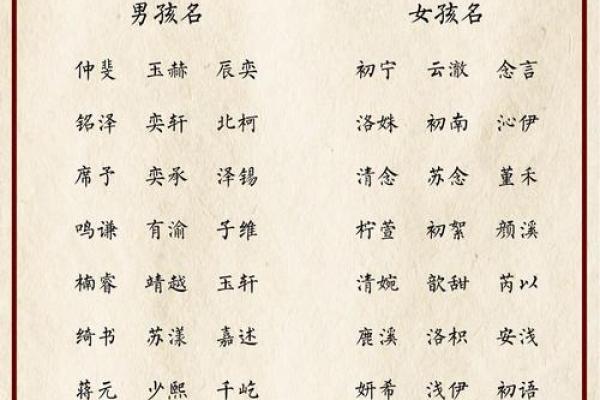 男孩名 女孩名
仲斐 玉赫 辰奕 初宁 云澈 念言
铭泽 奕轩 北柯 洛姝 初南 沁伊
席予 奕承 泽锡 清念 苏念 董禾
鸣谦 有渝 子维 柠萱 初絮 颜溪
楠睿 靖越 玉轩 清婉 歆甜 芮以
绮书 苏漾 嘉述 鹿溪 洛枳 安浅
蒋元 少熙 千屹 妍希 浅伊 初语